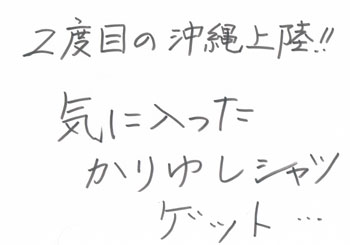 2度目の沖縄上陸!!
気に入った
かりゆしシャツ
ゲット…